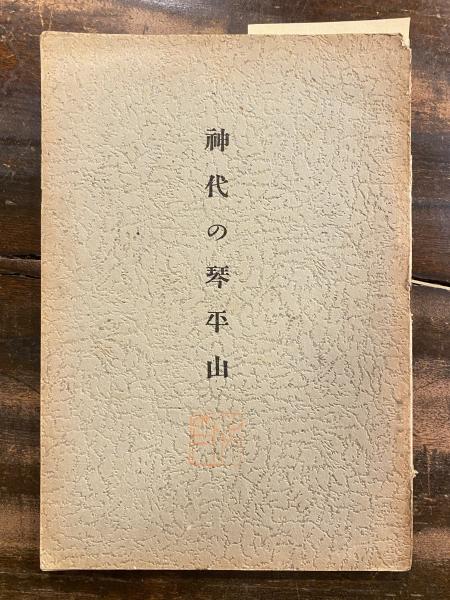 神代の琴平山